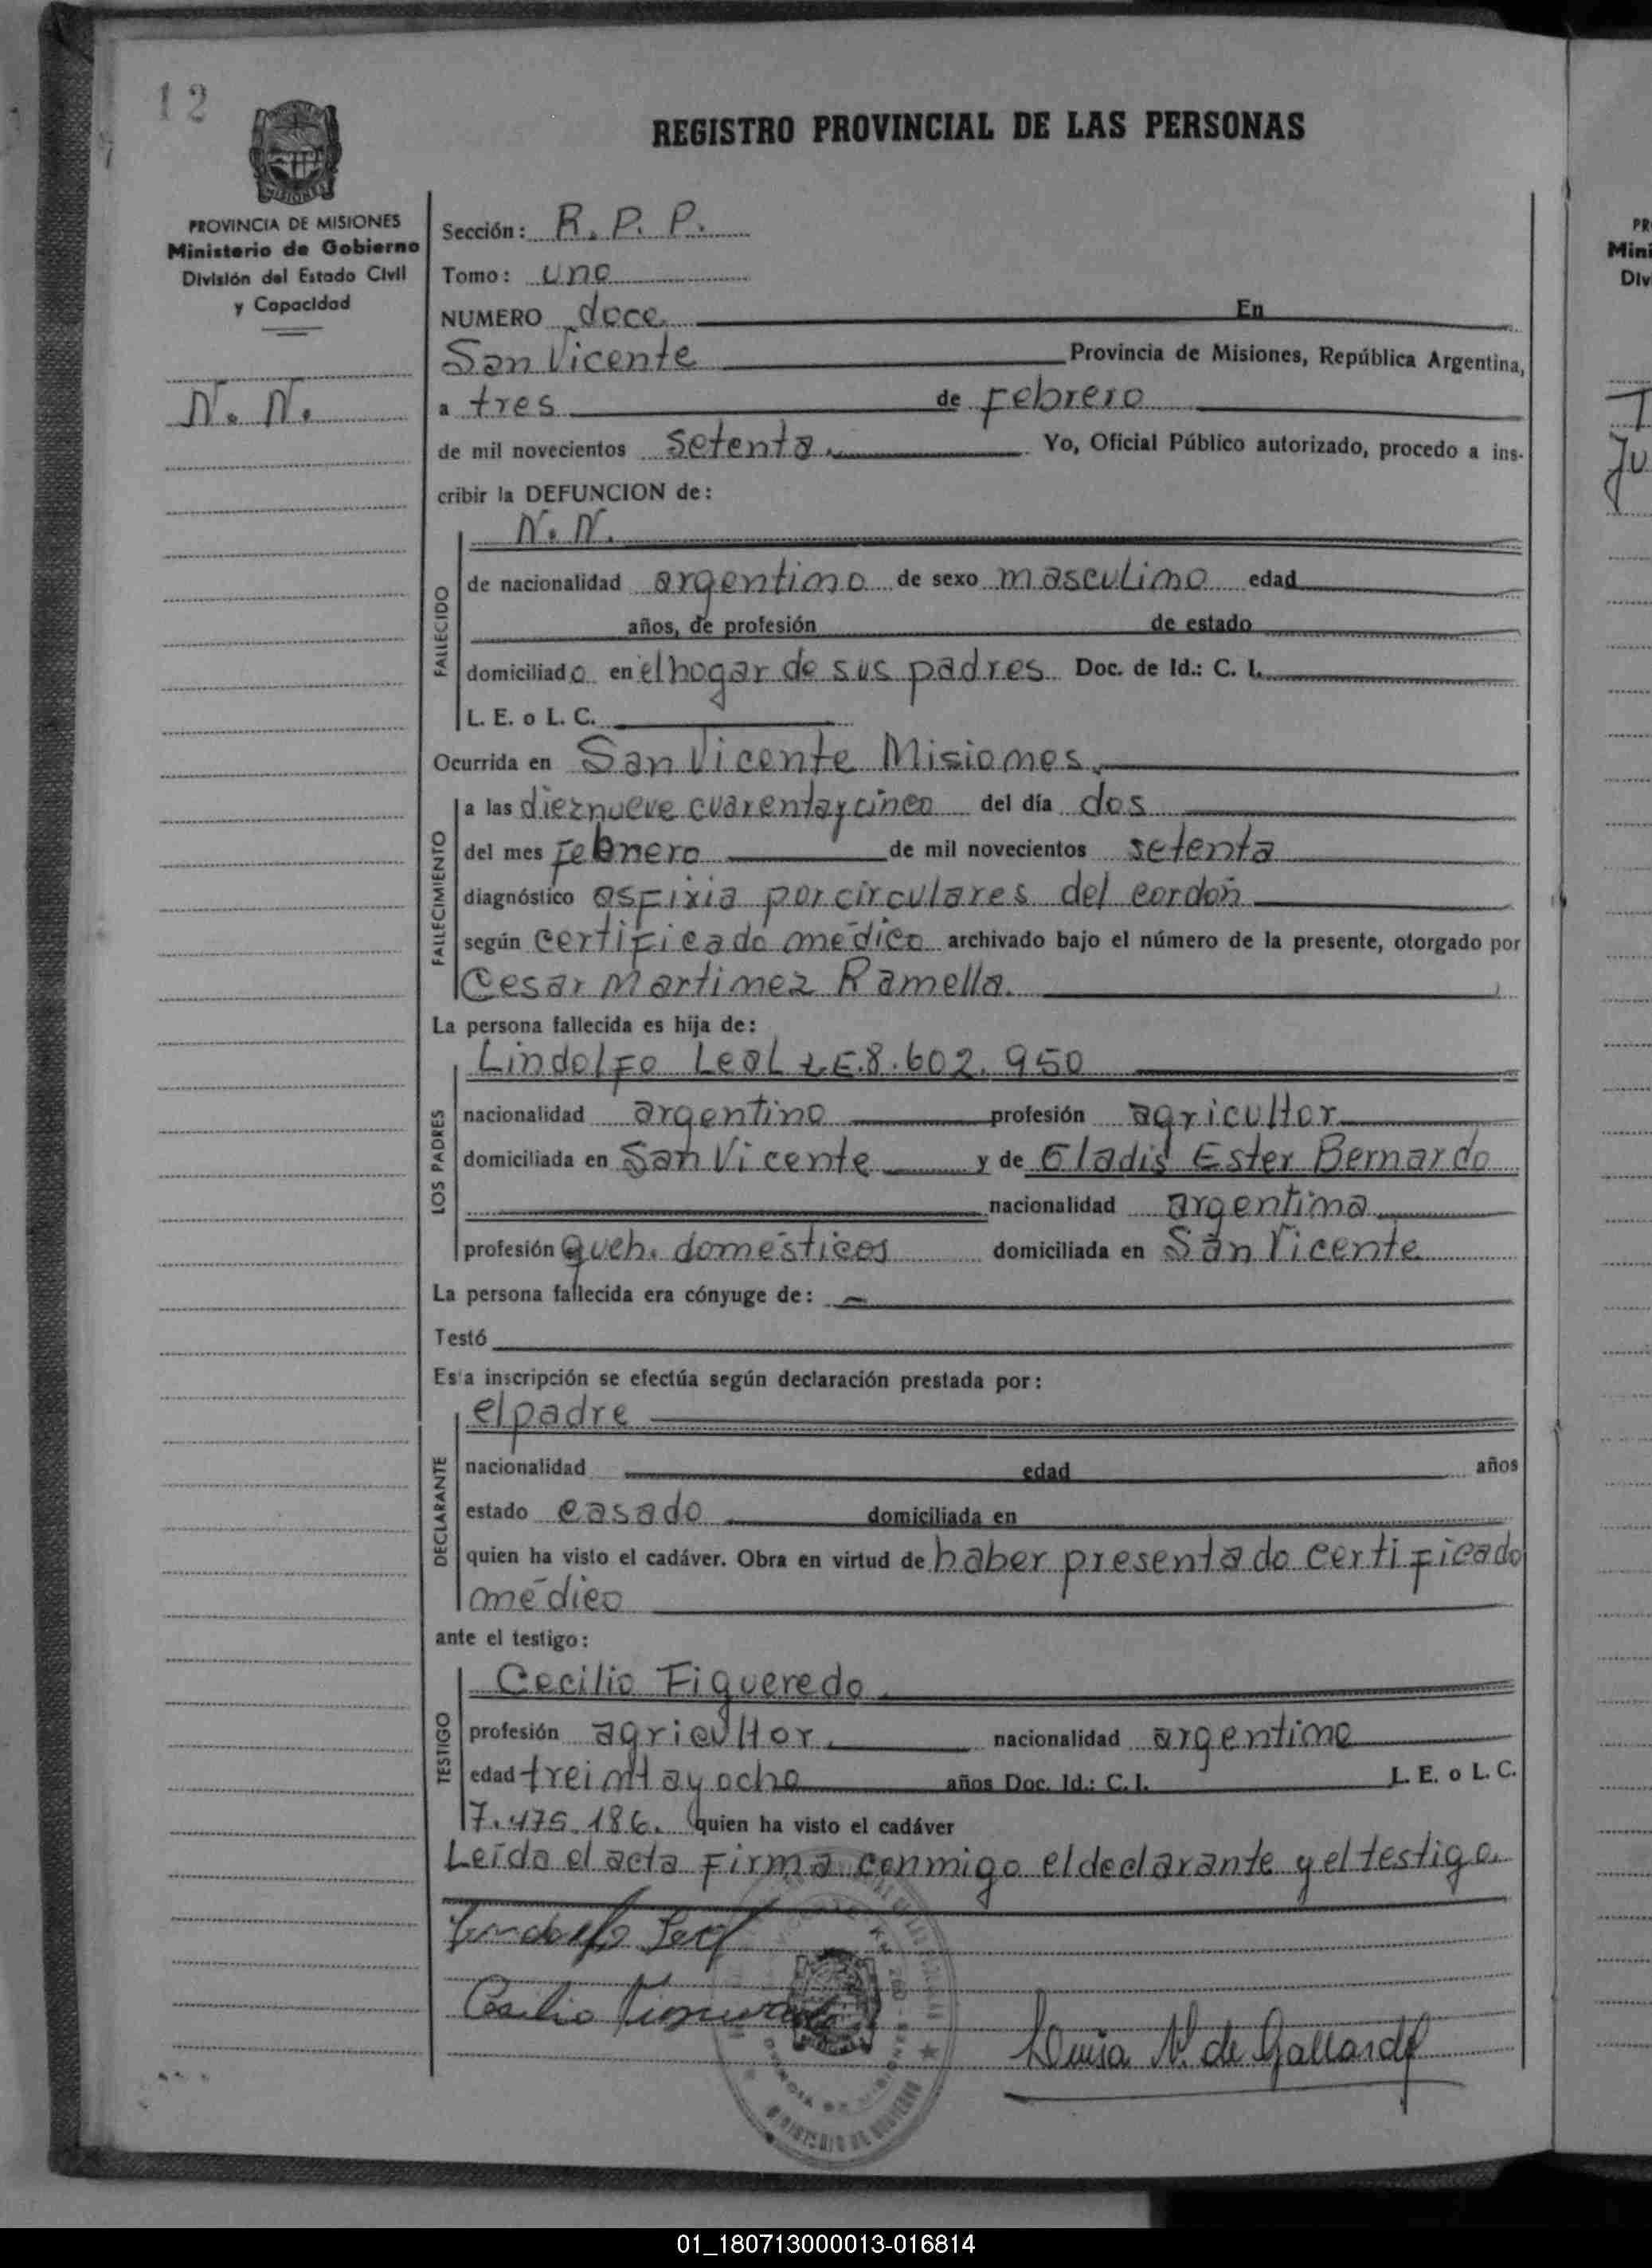 12
REGISTRO PROVINCIAL DE LAS PERSONAS
MISIONES
PROVINCIA DE MISIONES
Ministerio de Gobierno
División del Estado Civil
y Capacidad
N. N.
Sección: R. P. P.
Tomo: uno
NUMERO doce En
San Vicente Provincia de Misiones, República Argentina,
a tres de Febrero
de mil novecientos setenta. Yo, Oficial Público autorizado, procedo a ins-
cribir la DEFUNCION de:
FALLECIDO
N. N.
de nacionalidad argentino de sexo masculino edad
años, de profesión de estado
domiciliado en el hogar de sus padres Doc. de Id.: C. I.
L. E. o L. C.
Ocurrida en San Vicente Misiones.
FALLECIMIENTO
a las dieznueve cuarentaycinco del día dos
del mes Febnero de mil novecientos setenta
diagnóstico asfixia por circulares del cordón
según certificado médico archivado bajo el número de la presente, otorgado por
Cesar Martinez Ramella.
La persona fallecida es hija de:
LOS PADRES
Lindolfo Leal L.E.8.602.950
nacionalidad argentino profesión agricultor
domiciliada en San Vicente y de Gladis Ester Bernardo
nacionalidad argentina
profesión queh. domésticos domiciliada en San Vicente
La persona fallecida era cónyuge de: —
Testó
Esta inscripción se efectúa según declaración prestada por:
DECLARANTE
el padre
nacionalidad edad años
estado casado domiciliada en
quien ha visto el cadáver. Obra en virtud de haber presentado certificado
médico
ante el testigo:
TESTIGO
Cecilio Figueredo
profesión agricultor. nacionalidad argentino
edad treintayocho años Doc. Id.: C. I. L. E. o L. C.
7.475.186. quien ha visto el cadáver
Leído el acta firma conmigo el declarante y el testigo.
Lindolfo Leal
Cecilio Figueredo
Luisa N. de Gallardo
MINISTERIO DE GOBIERNO
PR
Mini
Div
01_180713000013-016814